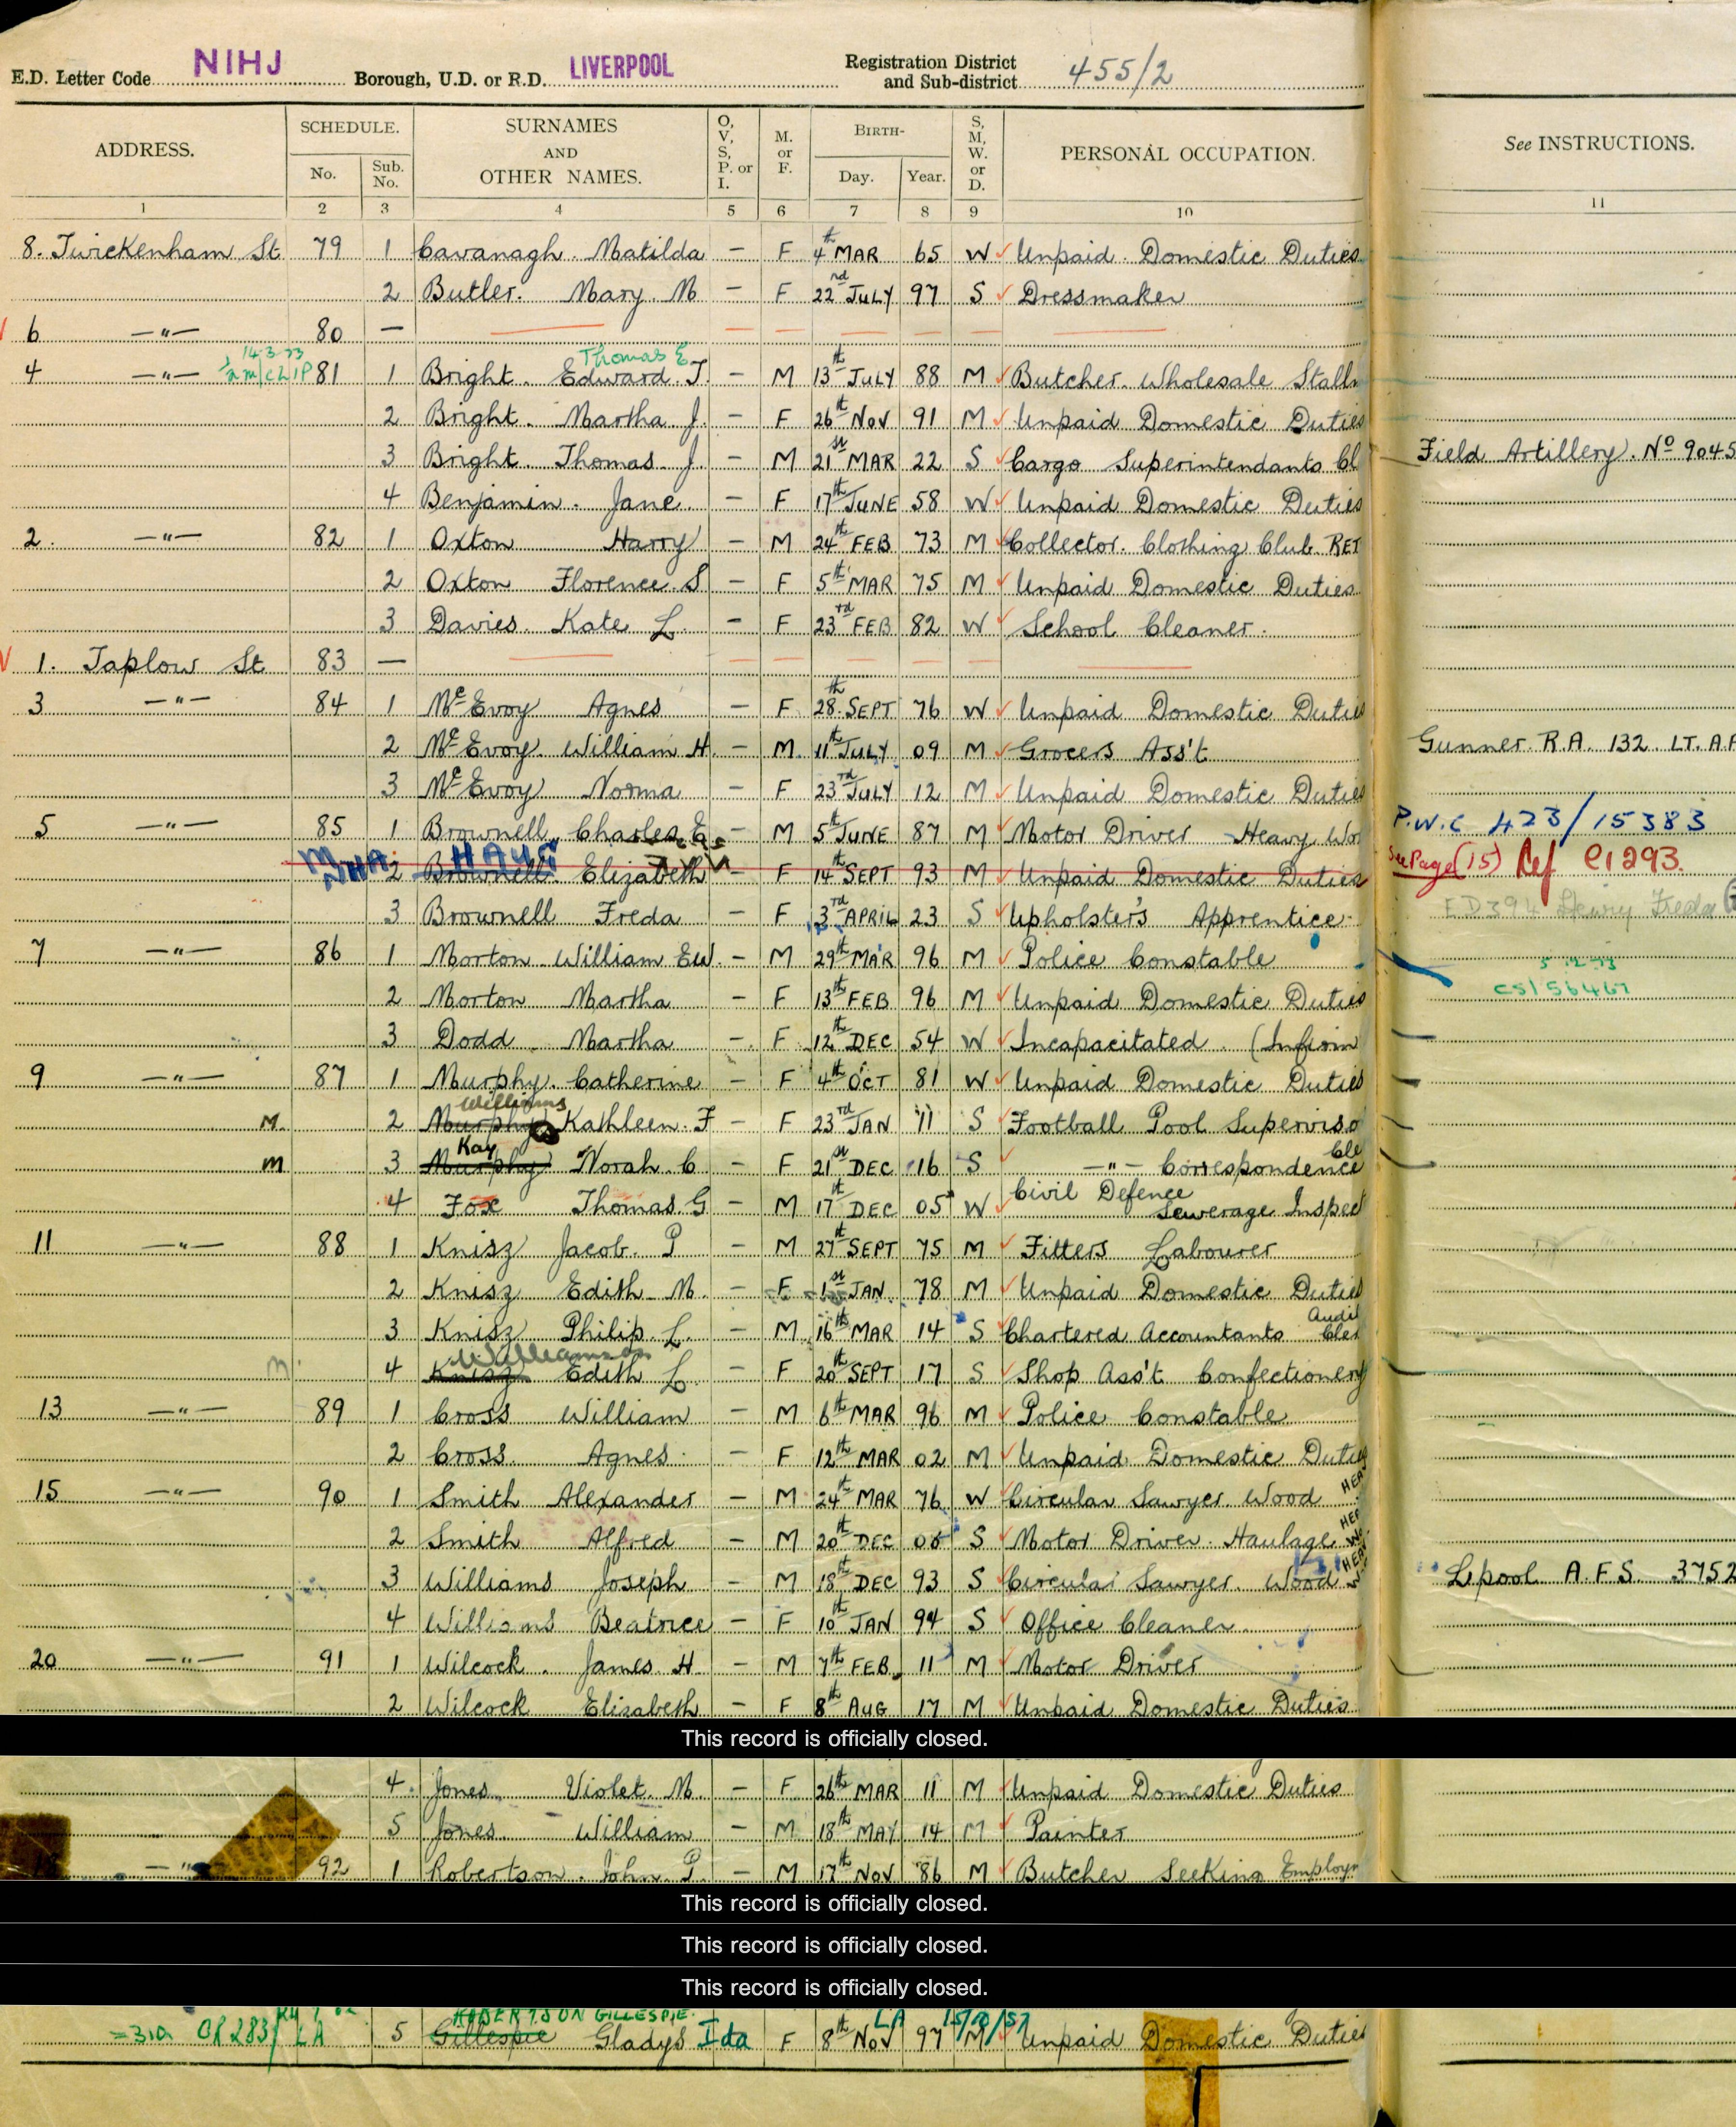 E.D. Letter Code NIHJ Borough, U.D. or R.D. LIVERPOOL Registration District and Sub-district 455/2
ADDRESS. SCHEDULE. No. Sub. No. SURNAMES AND OTHER NAMES. O, V, S, P. or I. M. or F. BIRTH- Day. Year. S, M, W. or D. PERSONAL OCCUPATION. See INSTRUCTIONS.
1 2 3 4 5 6 7 8 9 10 11
8. Twickenham St 79 1 Cavanagh. Matilda — F 4th MAR 65 W Unpaid Domestic Duties
2 Butler. Mary. M — F 22nd JULY 97 S Dressmaker
6 —"— 80 —
14-3-73 Thomas E
4 —"— 81 1 Bright. Edward. J. — M 13th JULY 88 M Butcher. Wholesale Stall
2 Bright. Martha J. — F 26th NOV 91 M Unpaid Domestic Duties
3 Bright. Thomas. J. — M 21st MAR 22 S Cargo Superintendants Cl Field Artillery. No 9045
4 Benjamin. Jane. — F 17th JUNE 58 W Unpaid Domestic Duties
2. —"— 82 1 Oxton Harry — M 24th FEB 73 M Collector. Clothing Club. RET
2 Oxton Florence. S — F 5th MAR 75 M Unpaid Domestic Duties
3 Davies. Kate L. — F 23rd FEB 82 W School Cleaner.
1. Taplow St 83 —
3 —"— 84 1 McEvoy Agnes — F 28th SEPT 76 W Unpaid Domestic Duties
2 McEvoy. William H. — M 11th JULY 09 M Grocers Ass't Gunner. R.A. 132. LT. A.A
3 McEvoy Norma — F 23rd JULY 12 M Unpaid Domestic Duties
5 —"— 85 1 Brownell. Charles. E. — M 5th JUNE 87 M Motor Driver - Heavy Wo P.W.C 423/15383
HAYS
2 Brownell. Elizabeth — F 14th SEPT 93 M Unpaid Domestic Duties See Page (15) Ref C1293.
3 Brownell Freda — F 3rd APRIL 23 S Upholster's Apprentice ED394 Freda
7 —"— 86 1 Morton William EW. — M 29th MAR 96 M Police Constable
2 Morton Martha — F 13th FEB 96 M Unpaid Domestic Duties CS156467
3 Dodd Martha — F 12th DEC 54 W Incapacitated. (Infirm
9 —"— 87 1 Murphy. Catherine — F 4th OCT 81 W Unpaid Domestic Duties
Williams
M. 2 Murphy Kathleen. F — F 23rd JAN 11 S Football Pool Superviso
Kay Cle
M 3 Murphy Norah. C — F 21st DEC 16 S —"— Correspondence
4 Fox Thomas. G — M 17th DEC 05 W Civil Defence Sewerage Inspec
11 —"— 88 1 Knisz Jacob. P — M 27th SEPT 75 M Fitters Labourer
2 Knisz Edith M. — F 1st JAN. 78 M Unpaid Domestic Duties
3 Knisz Philip L. — M 16th MAR 14 S Chartered Accountants Audit Cler
Williamson
M. 4 Knisz Edith L. — F 20th SEPT 17 S Shop Ass't Confectionery
13 —"— 89 1 Cross William — M 6th MAR 96 M Police Constable
2 Cross. Agnes. — F 12th MAR 02 M Unpaid Domestic Duties
15 —"— 90 1 Smith Alexander — M 24th MAR 76 W Circular Sawyer. Wood HEA
2 Smith Alfred — M 20th DEC 06 S Motor Driver. Haulage HEA W
3 Williams Joseph — M 18th DEC 93 S Circular Sawyer. Wood HEA W Lpool A.F.S. 3752
4 Williams Beatrice — F 10th JAN 94 S Office Cleaner.
20 —"— 91 1 Wilcock. James H — M 7th FEB. 11 M Motor Driver
2 Wilcock Elizabeth — F 8th AUG 17 M Unpaid Domestic Duties
This record is officially closed.
4. Jones. Violet. M. — F 26th MAR 11 M Unpaid Domestic Duties
5 Jones. William — M 18th MAY 14 M Painter
—"— 92 1 Robertson. John P. — M 17th NOV 86 M Butcher Seeking Employm
This record is officially closed.
This record is officially closed.
This record is officially closed.
ROBERTSON GILLESPIE. LA 15/10/57
OR283/ LA 5 Gillespie Gladys Ida F 8th NOV 97 M Unpaid Domestic Duties